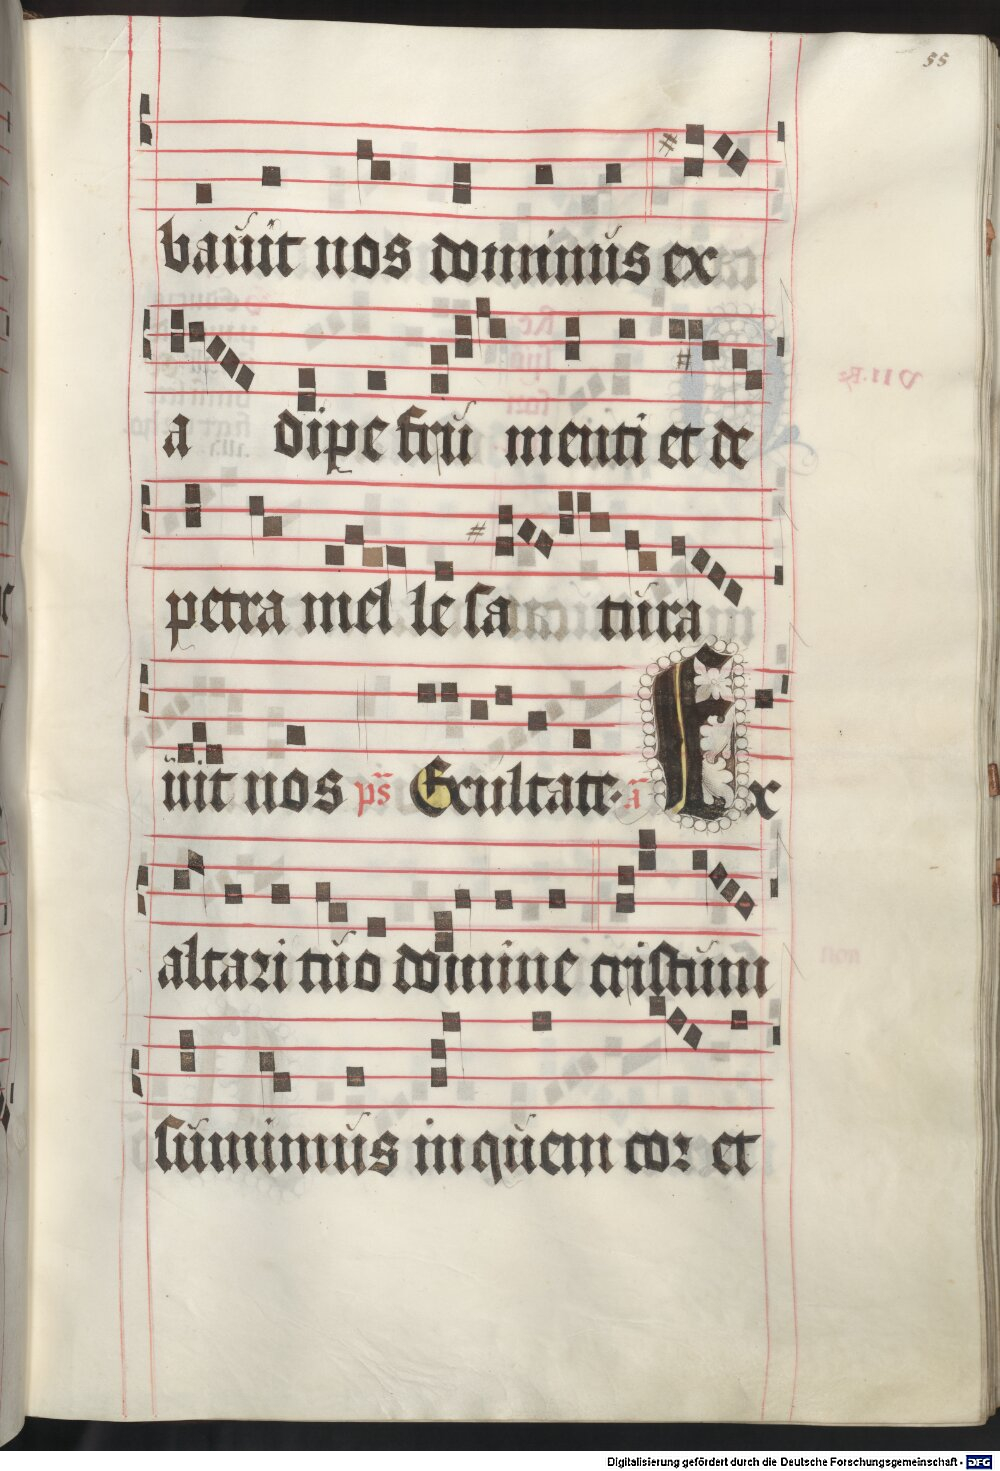 55
bauit nos dominus ex
a dipe fru menti et de
petra mel le sa tura
uit nos ps Exultate. a Ex
altari tuo domine cristum
sumimus in quem cor et
Digitalisierung gefördert durch die Deutsche Forschungsgemeinschaft - DFG